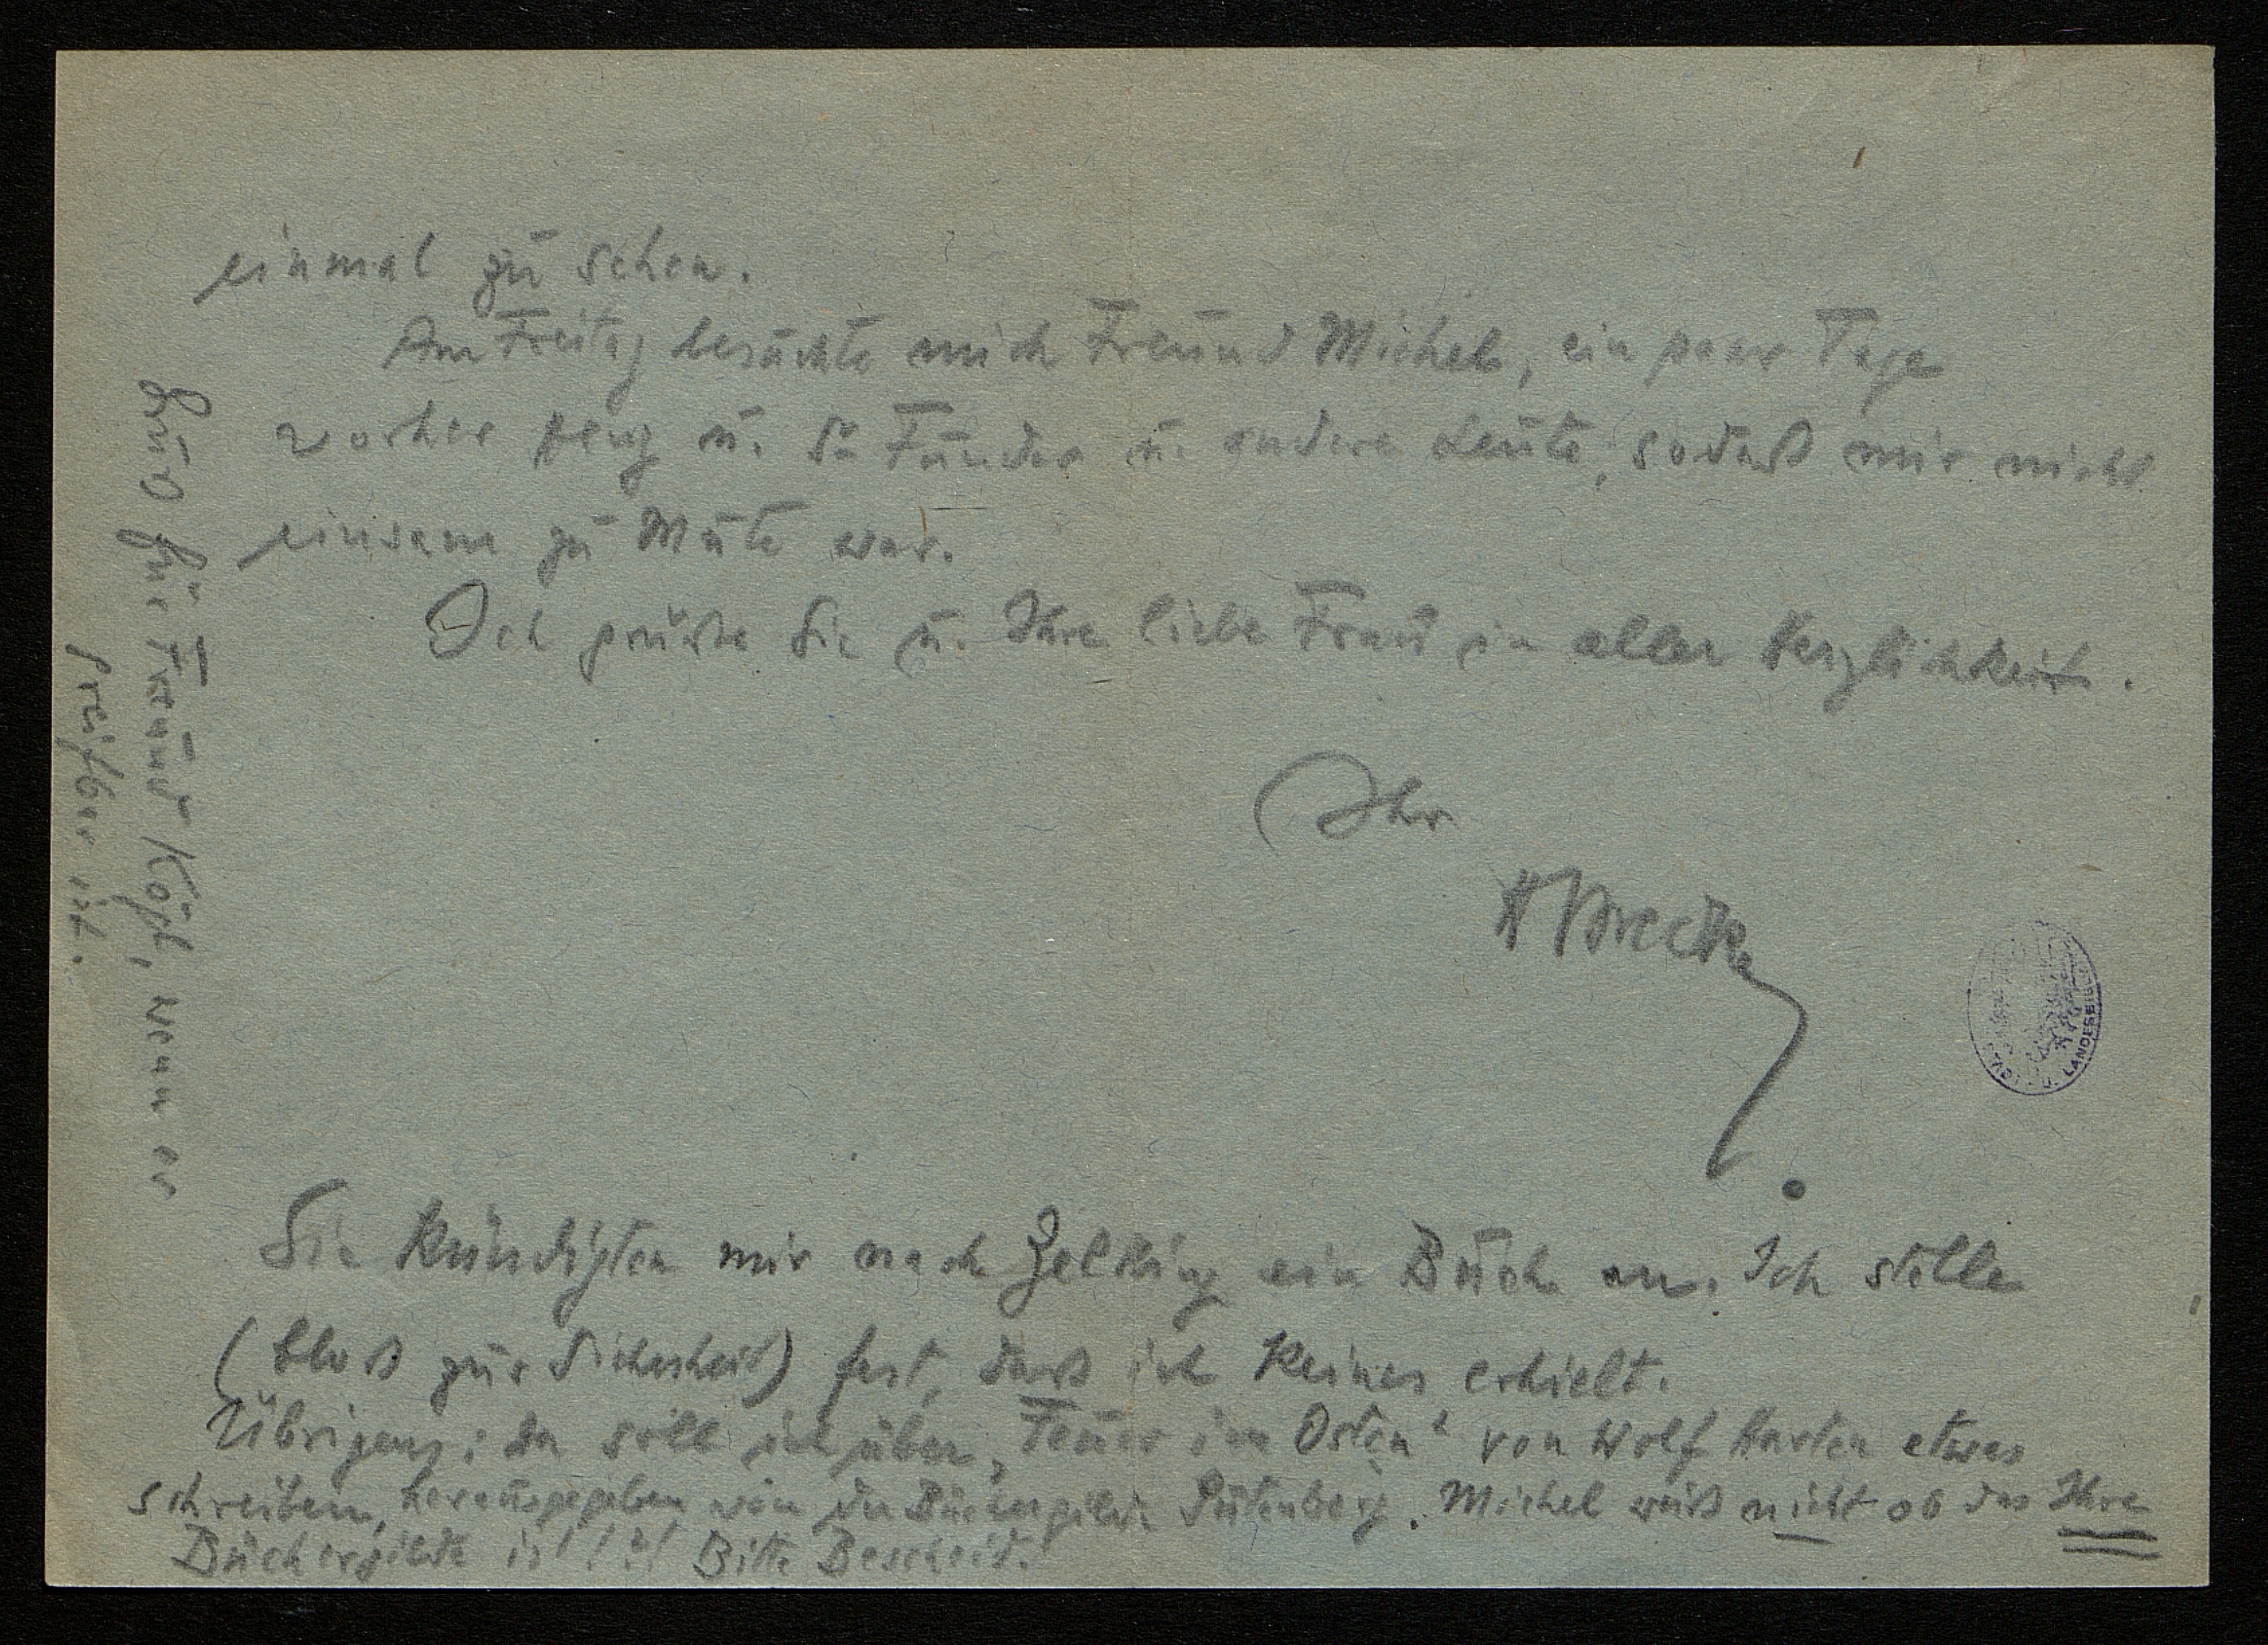 einmal zu sehen.
Am Freitag besuchte mich Freund Michel, ein paar Tage
vorher u. Dr Funder u. andere Leute, sodaß mir nicht
einsam zu Mute war.
Ich grüße Sie u. Ihre liebe Frau in aller Herzlichkeit.
Ihr
Sie kündigten mir nach Zelking ein Buch an. Ich stelle
(bloß zur Sicherheit) fest, daß ich keines erhielt.
Übrigens: da soll ich über „Feuer im Osten“ von Wolf Harten etwas
schreiben, herausgegeben von der Büchergilde Gutenberg. Michel weiß nicht ob das Ihre
Büchergilde ist!?! Bitte Bescheid.
Gruß für Freund Köfl, wenn er
greifbar ist.
U. LANDESBIBL